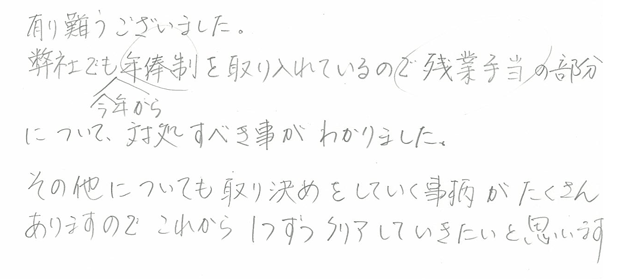 有り難うございました。
弊社でも年俸制を取り入れているので残業手当の部分
今年から
について、対処すべき事がわかりました。
その他についても取り決めをしていく事柄がたくさん
ありますのでこれから1つずつクリアしていきたいと思います